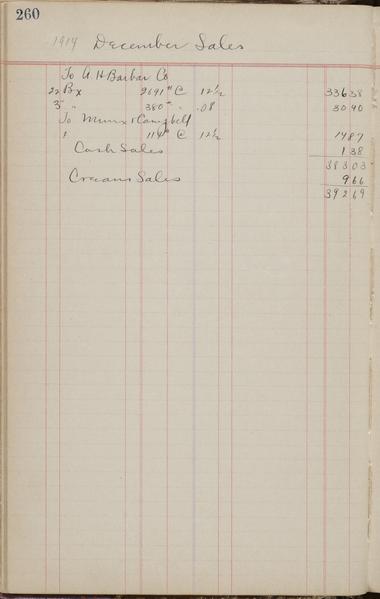 260
1914 December Sales
To A. H Barbar Co
22 Bx 2691 # @ 12 1/2 336 38
3 " 380 " " .08 30 40
To Munx & Campbell
1 119 # @ 12 1/2 14 87
Cash Sales 1 38
383 03
Cream Sales 9 66
392 69